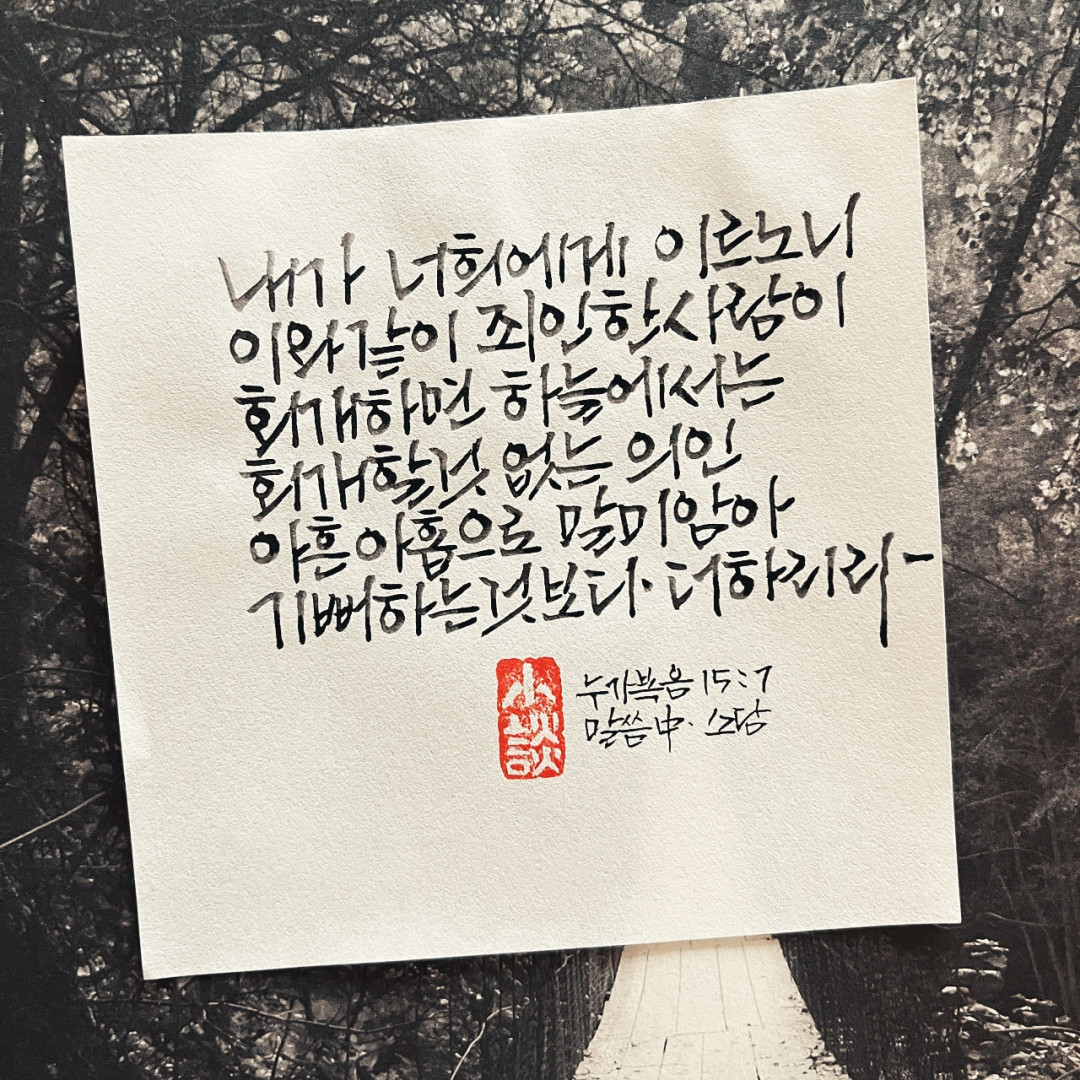 내가 너희에게 이르노니
이와같이 죄인한사람이
회개하면 하늘에서는
회개할것 없는 의인
아흔아홉으로 말미암아
기뻐하는것보다. 더하리라-
小談
누가복음 15:7
말씀中. 소담